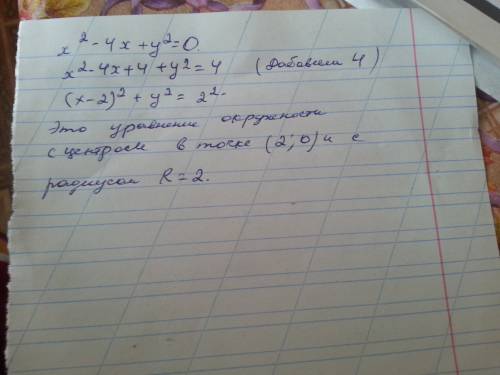 x² - 4x + y² = 0.
x² - 4x + 4 + y² = 4 (Добавили 4)
(x - 2)² + y² = 2².
Это уравнение окружности
с центром в точке (2; 0) и с
радиусом R = 2.